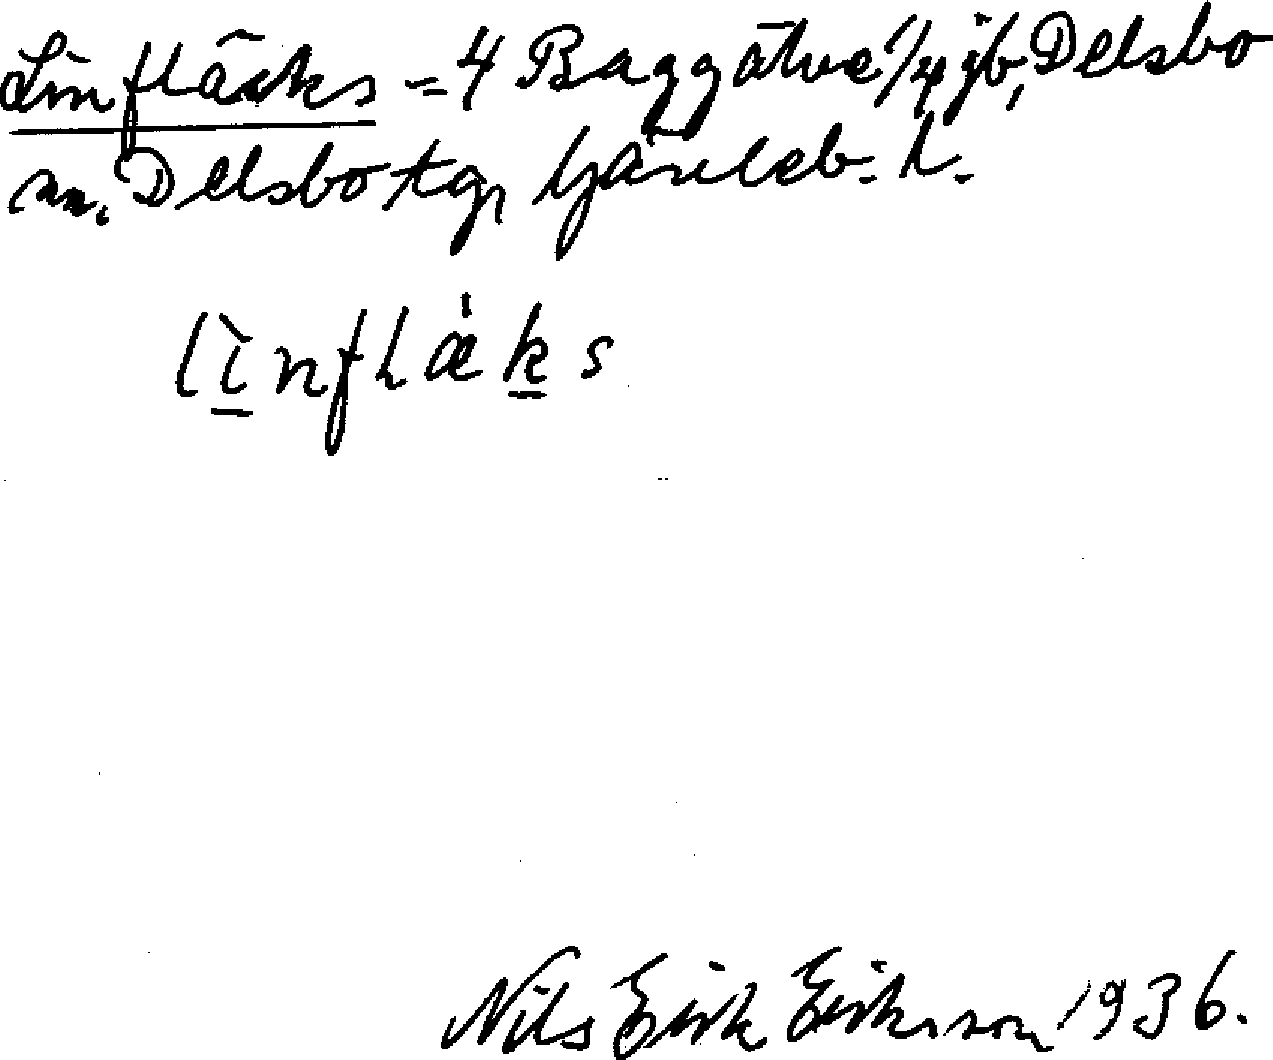 Linfläcks = 4 Baggätve 1/4 jb, Delsbo
sn. Delsbo tg, Gävleb. l.
lìnflä̀ks
Nils Erik Eriksson 1936.